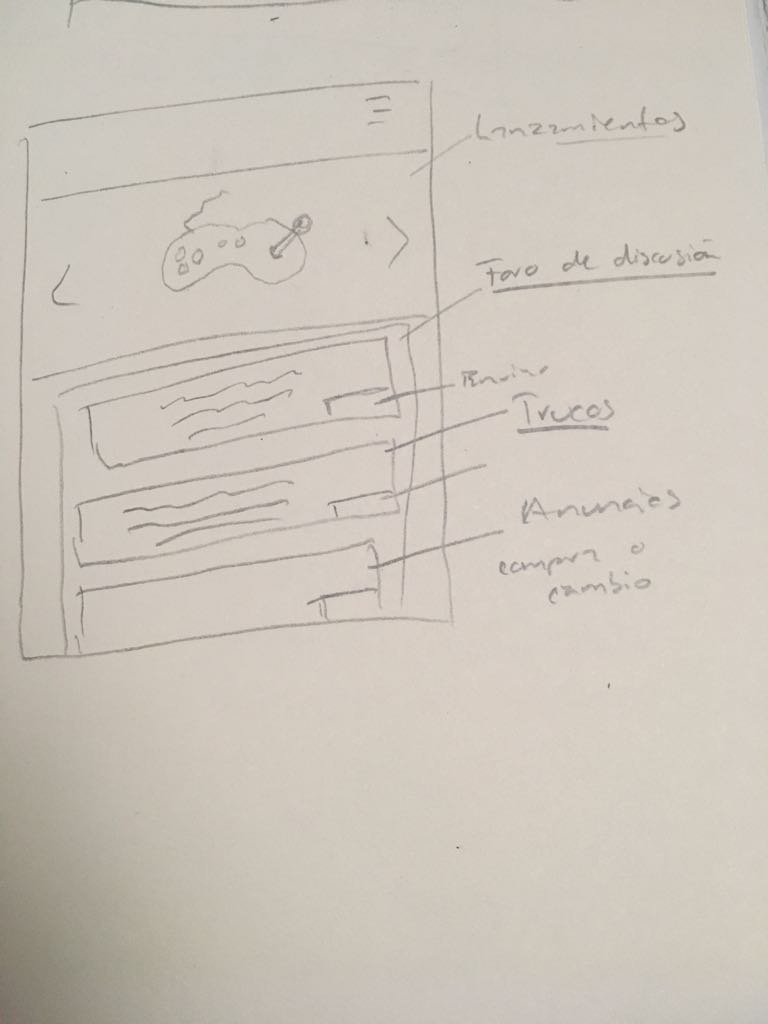 Lanzamientos
Foro de discusión
Enviar
Trucos
Anuncios
compra o
cambio